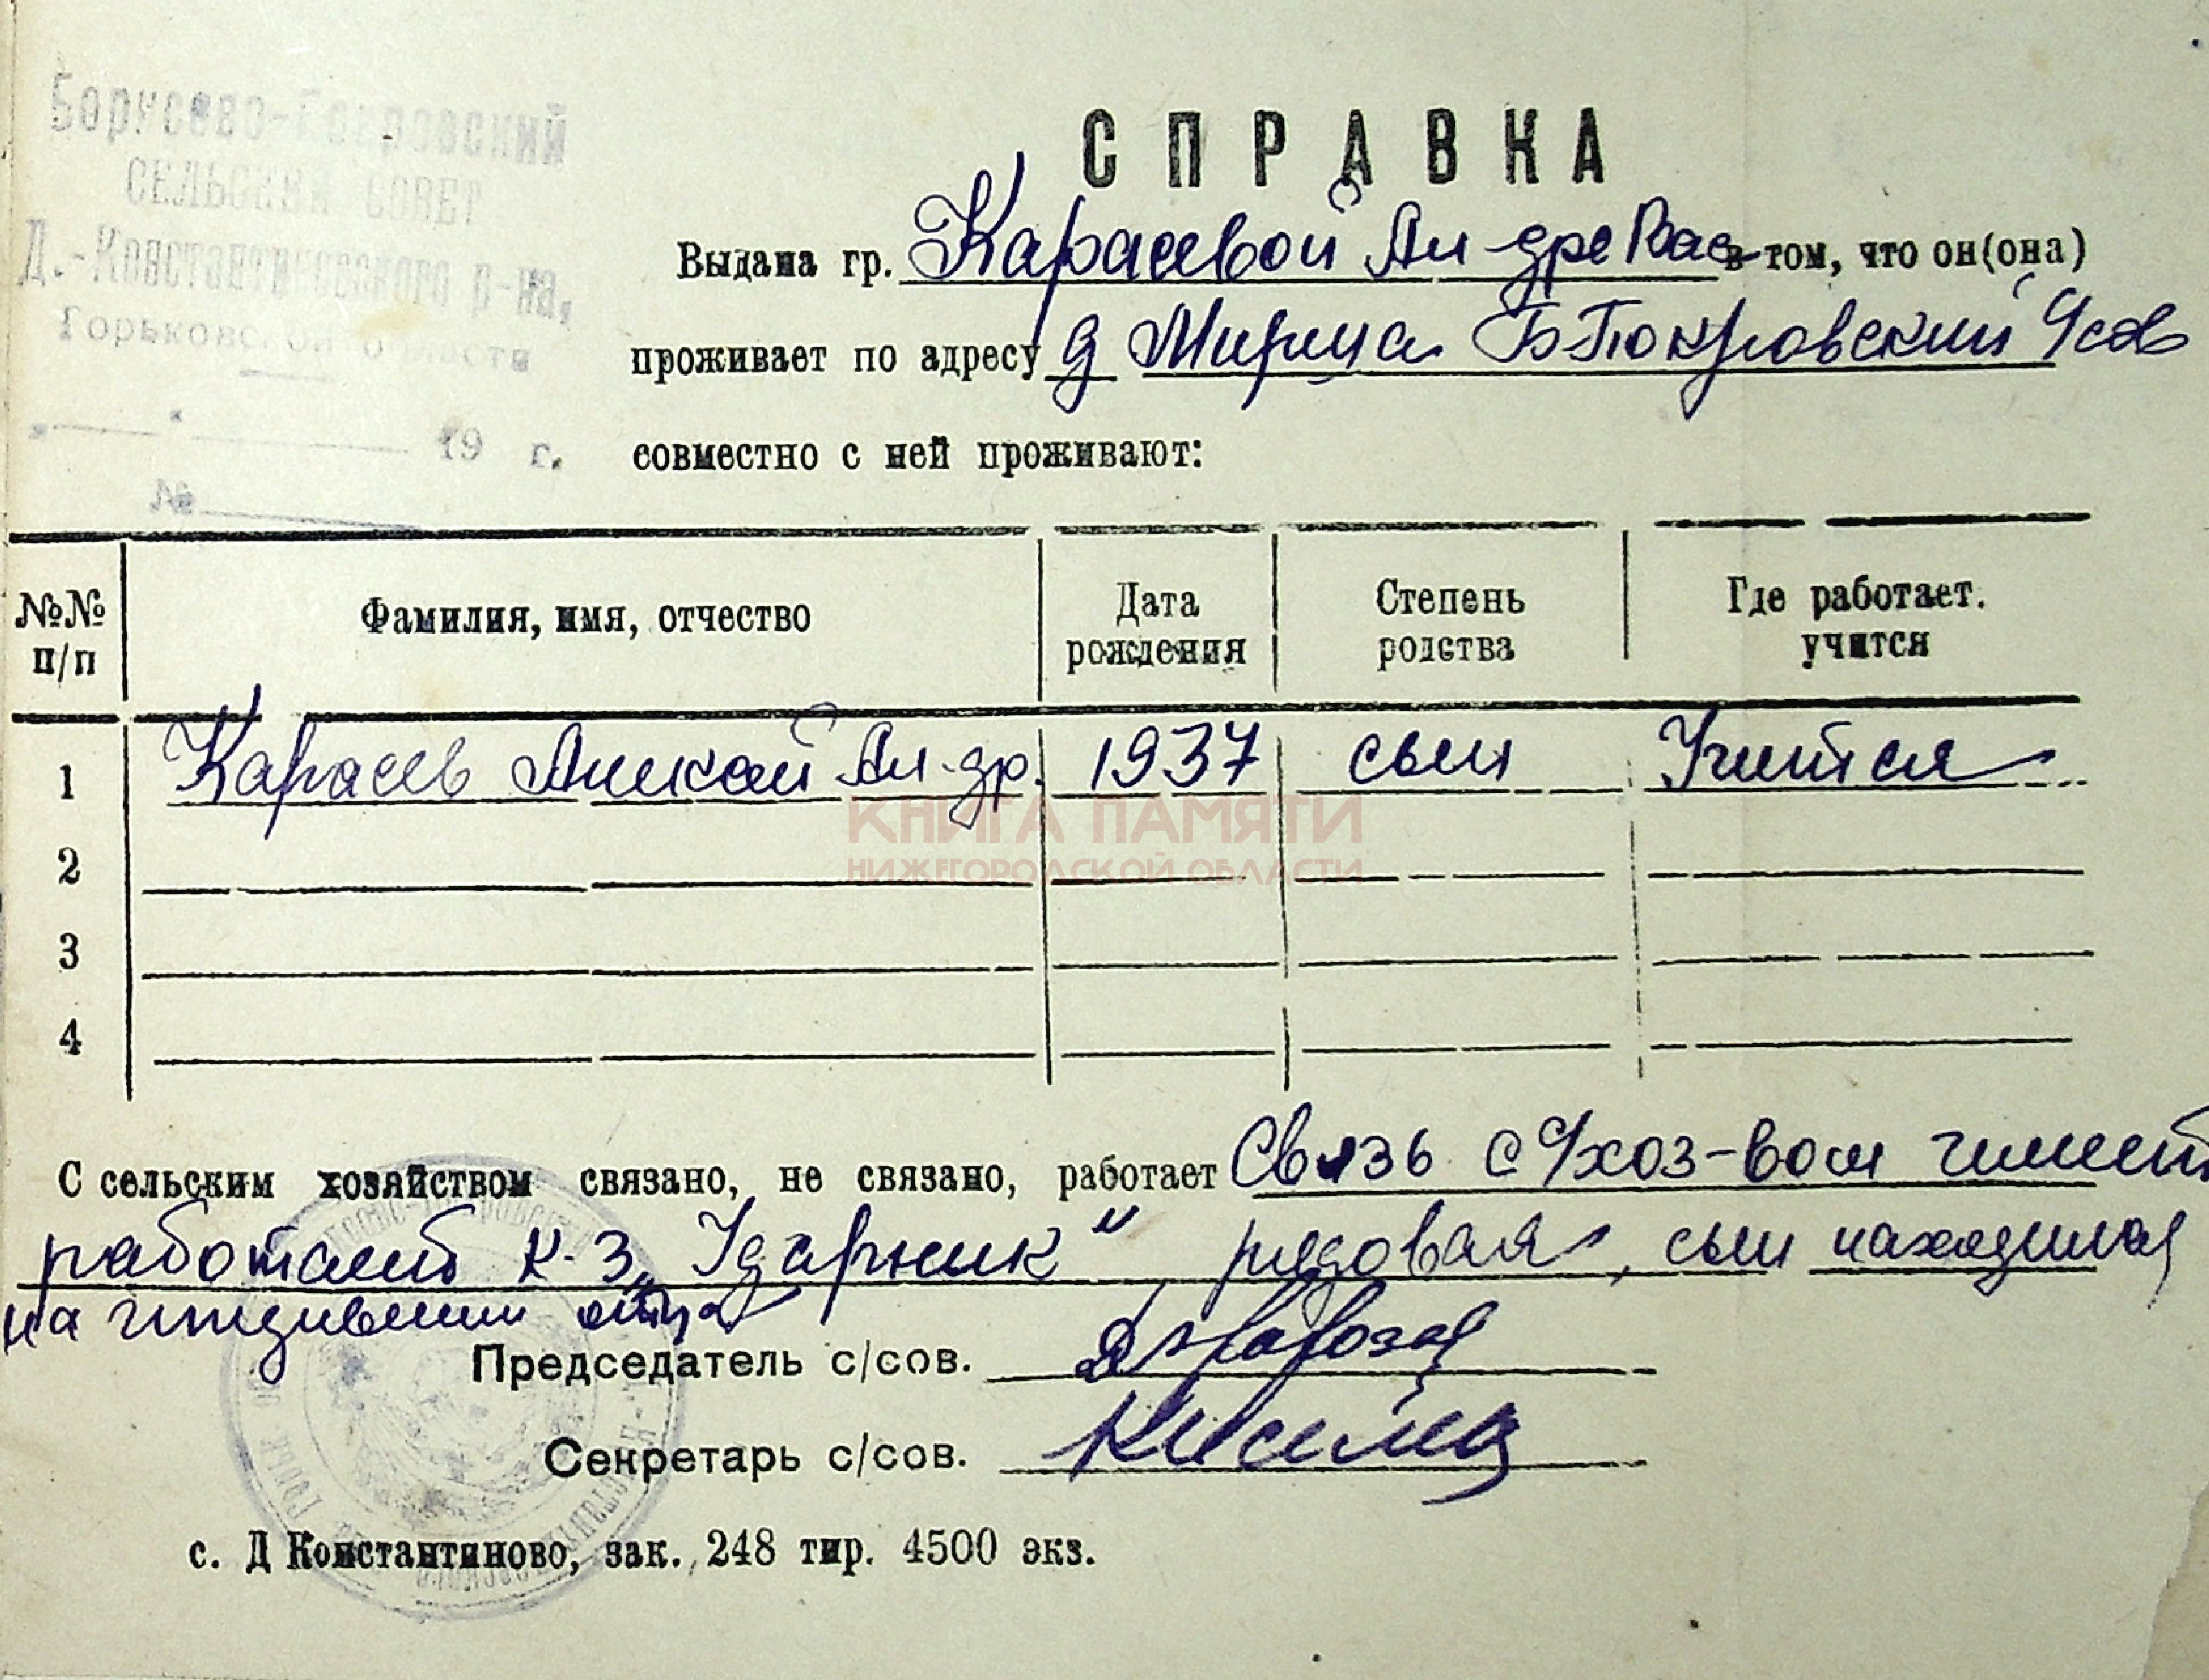 Борусово-Покровский
СЕЛЬСКИЙ СОВЕТ
Д.-Константиновского р-на,
Горьковской области
" " 19 г.
№
СПРАВКА
Выдана гр. Карасевой Ал-дре Вас в том, что он(она)
проживает по адресу д Мириха Б-Покровский с/сов
совместно с ней проживают:
№№ п/п
Фамилия, имя, отчество
Дата рождения
Степень родства
Где работает. учится
1 Карасев Ал-др. 1937 сын Учится
2
3
4
КНИГА ПАМЯТИ
НИЖЕГОРОДСКОЙ ОБЛАСТИ
С сельским хозяйством связано, не связано, работает Связь с с/хоз-вом имеет
работает к-з „Ударник" рядовая, сын находился
на иждивении отца
Председатель с/сов.
Секретарь с/сов.
с. Д Константиново, зак. 248 тир. 4500 экз.